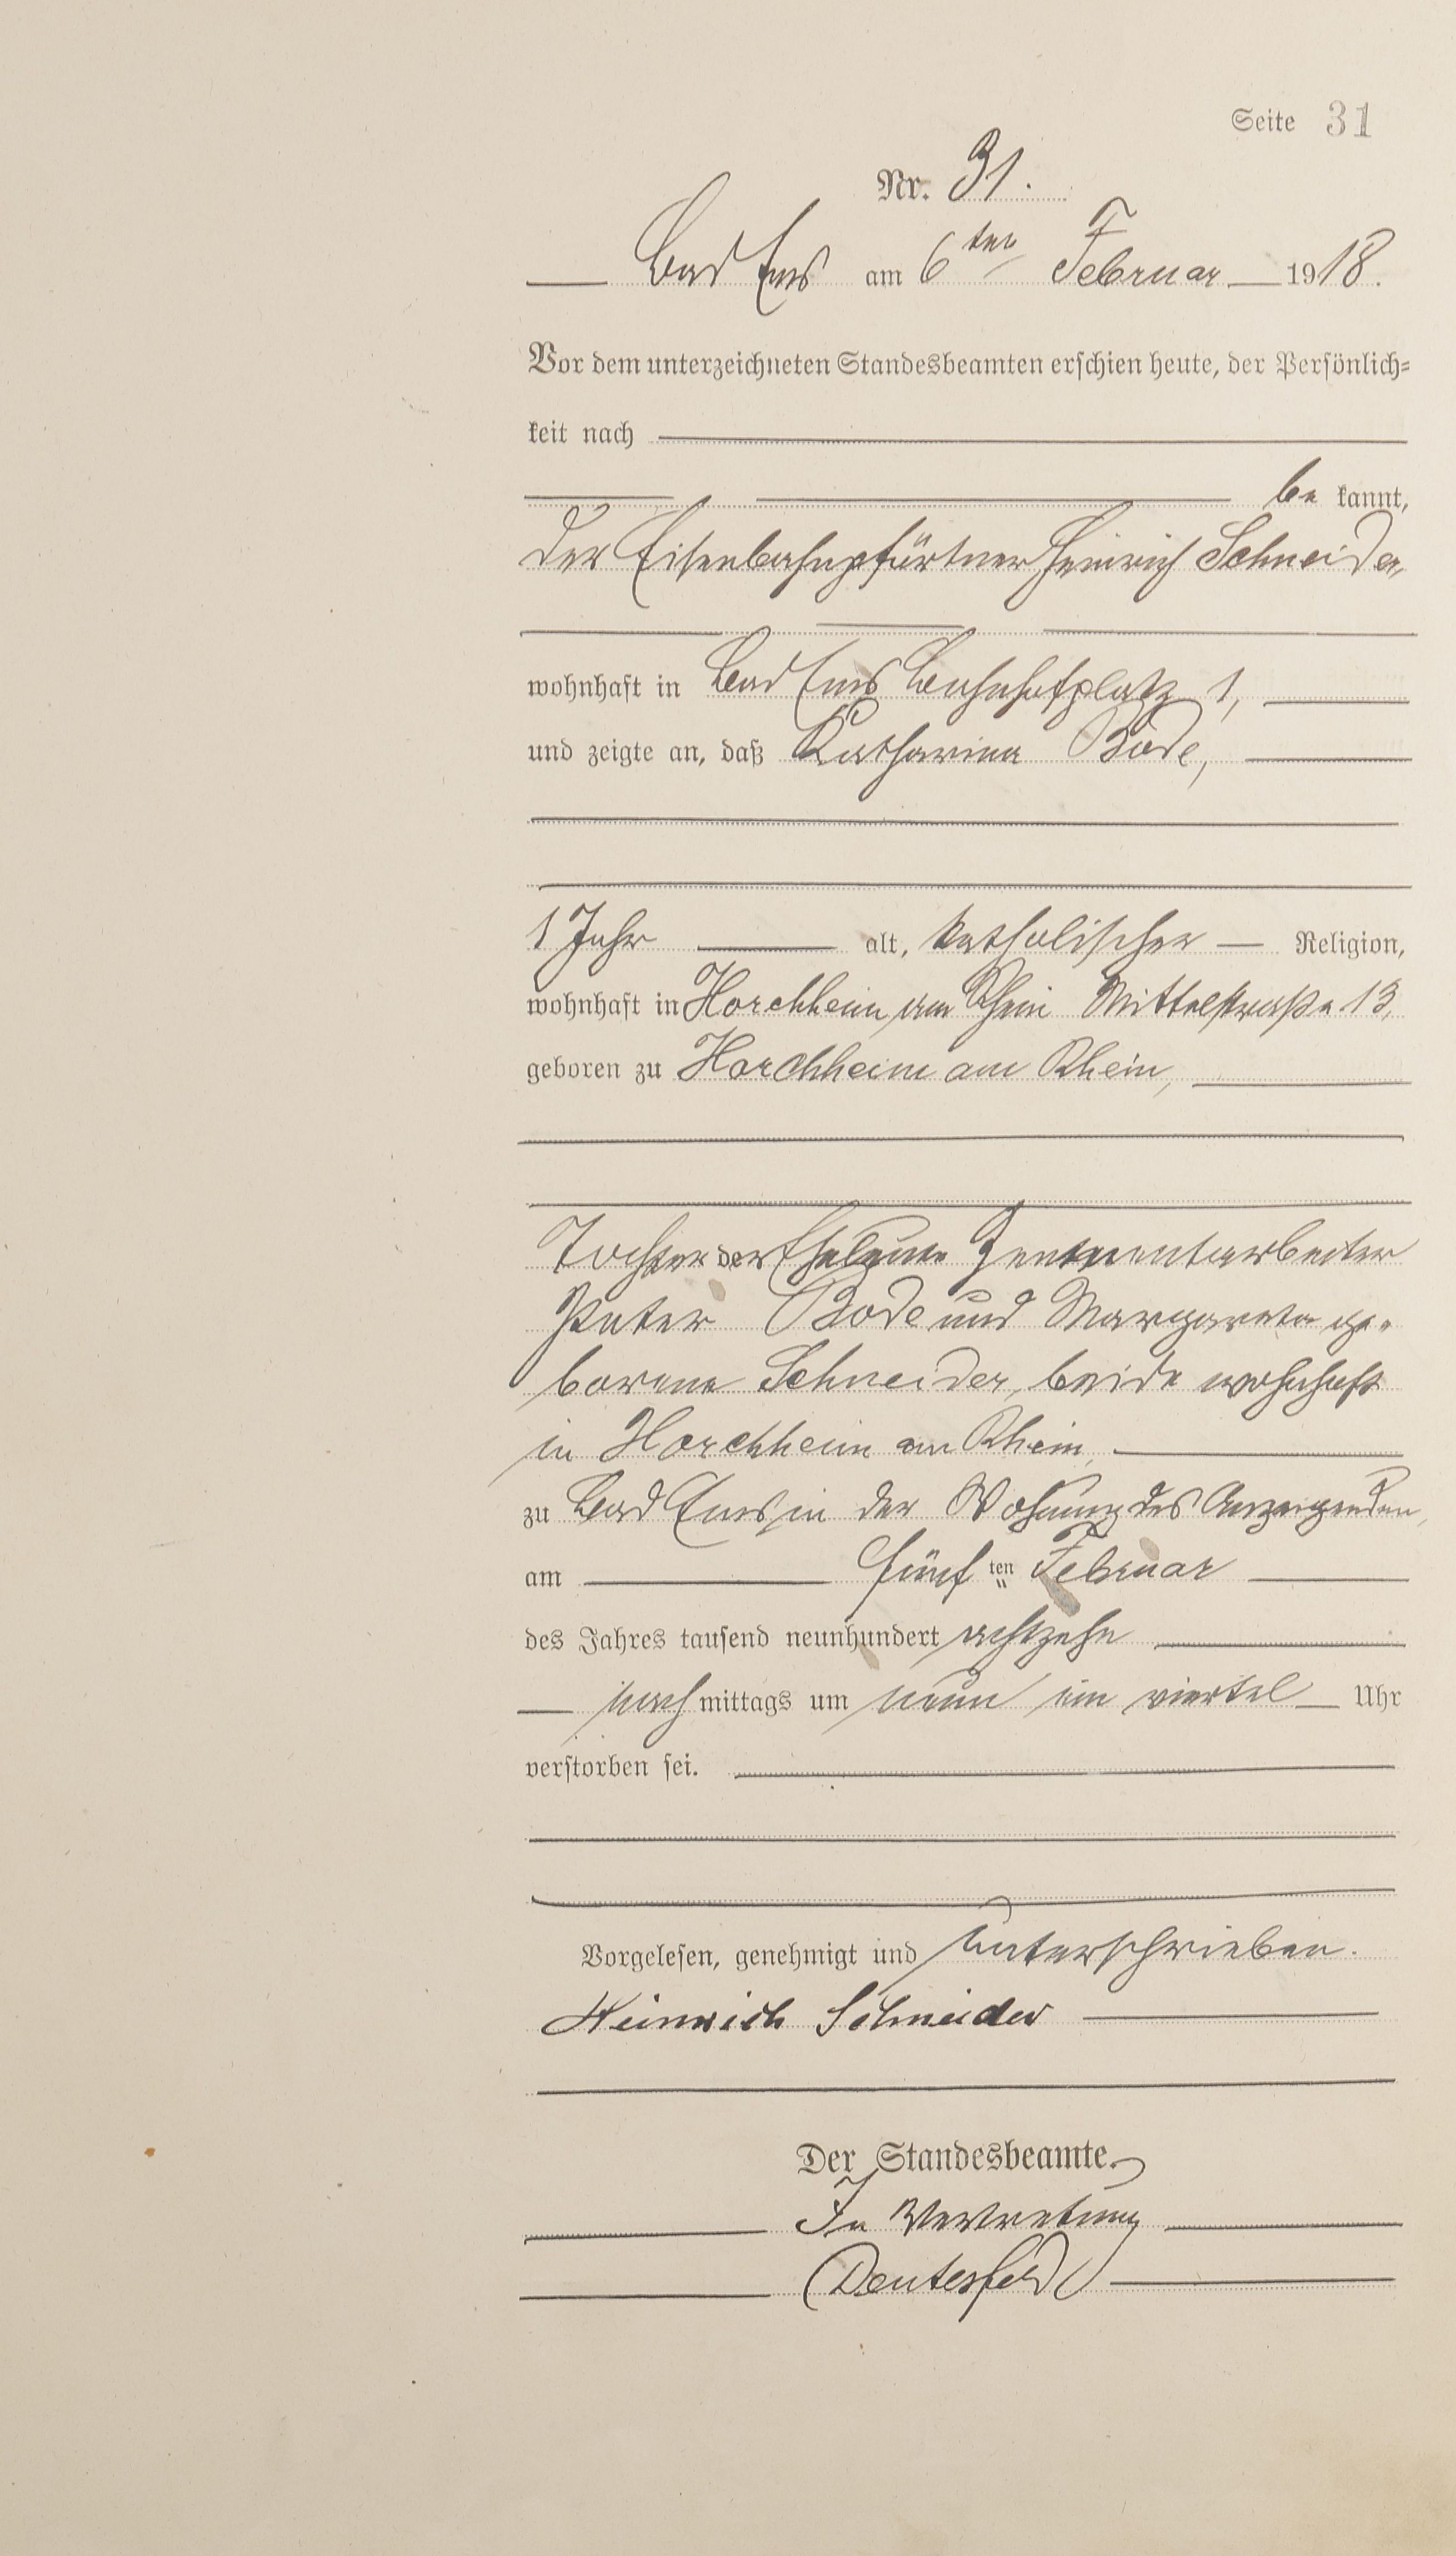 Seite 31
Nr. 31.
Bad Ems am 6ten Februar 1918.
Vor dem unterzeichneten Standesbeamten erschien heute, der Persönlich=
keit nach
be kannt,
der Eisenbahnpförtner Heinrich Schneider,
wohnhaft in Bad Ems Bahnhofplatz 1,
und zeigte an, daß Katharina Bode,
1 Jahr alt, katholischer Religion,
wohnhaft in Horchheim am Rhein Mittelstraße 13,
geboren zu Horchheim am Rhein,
Tochter der Eheleute Zementarbeiter
Peter Bode und Margareta ge-
borene Schneider, beide wohnhaft
in Horchheim am Rhein,
zu Bad Ems, in der Wohnung des Anzeigenden,
am fünf ten Februar
des Jahres tausend neunhundert achtzehn
nach mittags um neun ein viertel Uhr
verstorben sei.
Vorgelesen, genehmigt und unterschrieben.
Heinrich Schneider
Der Standesbeamte.
In Vertretung